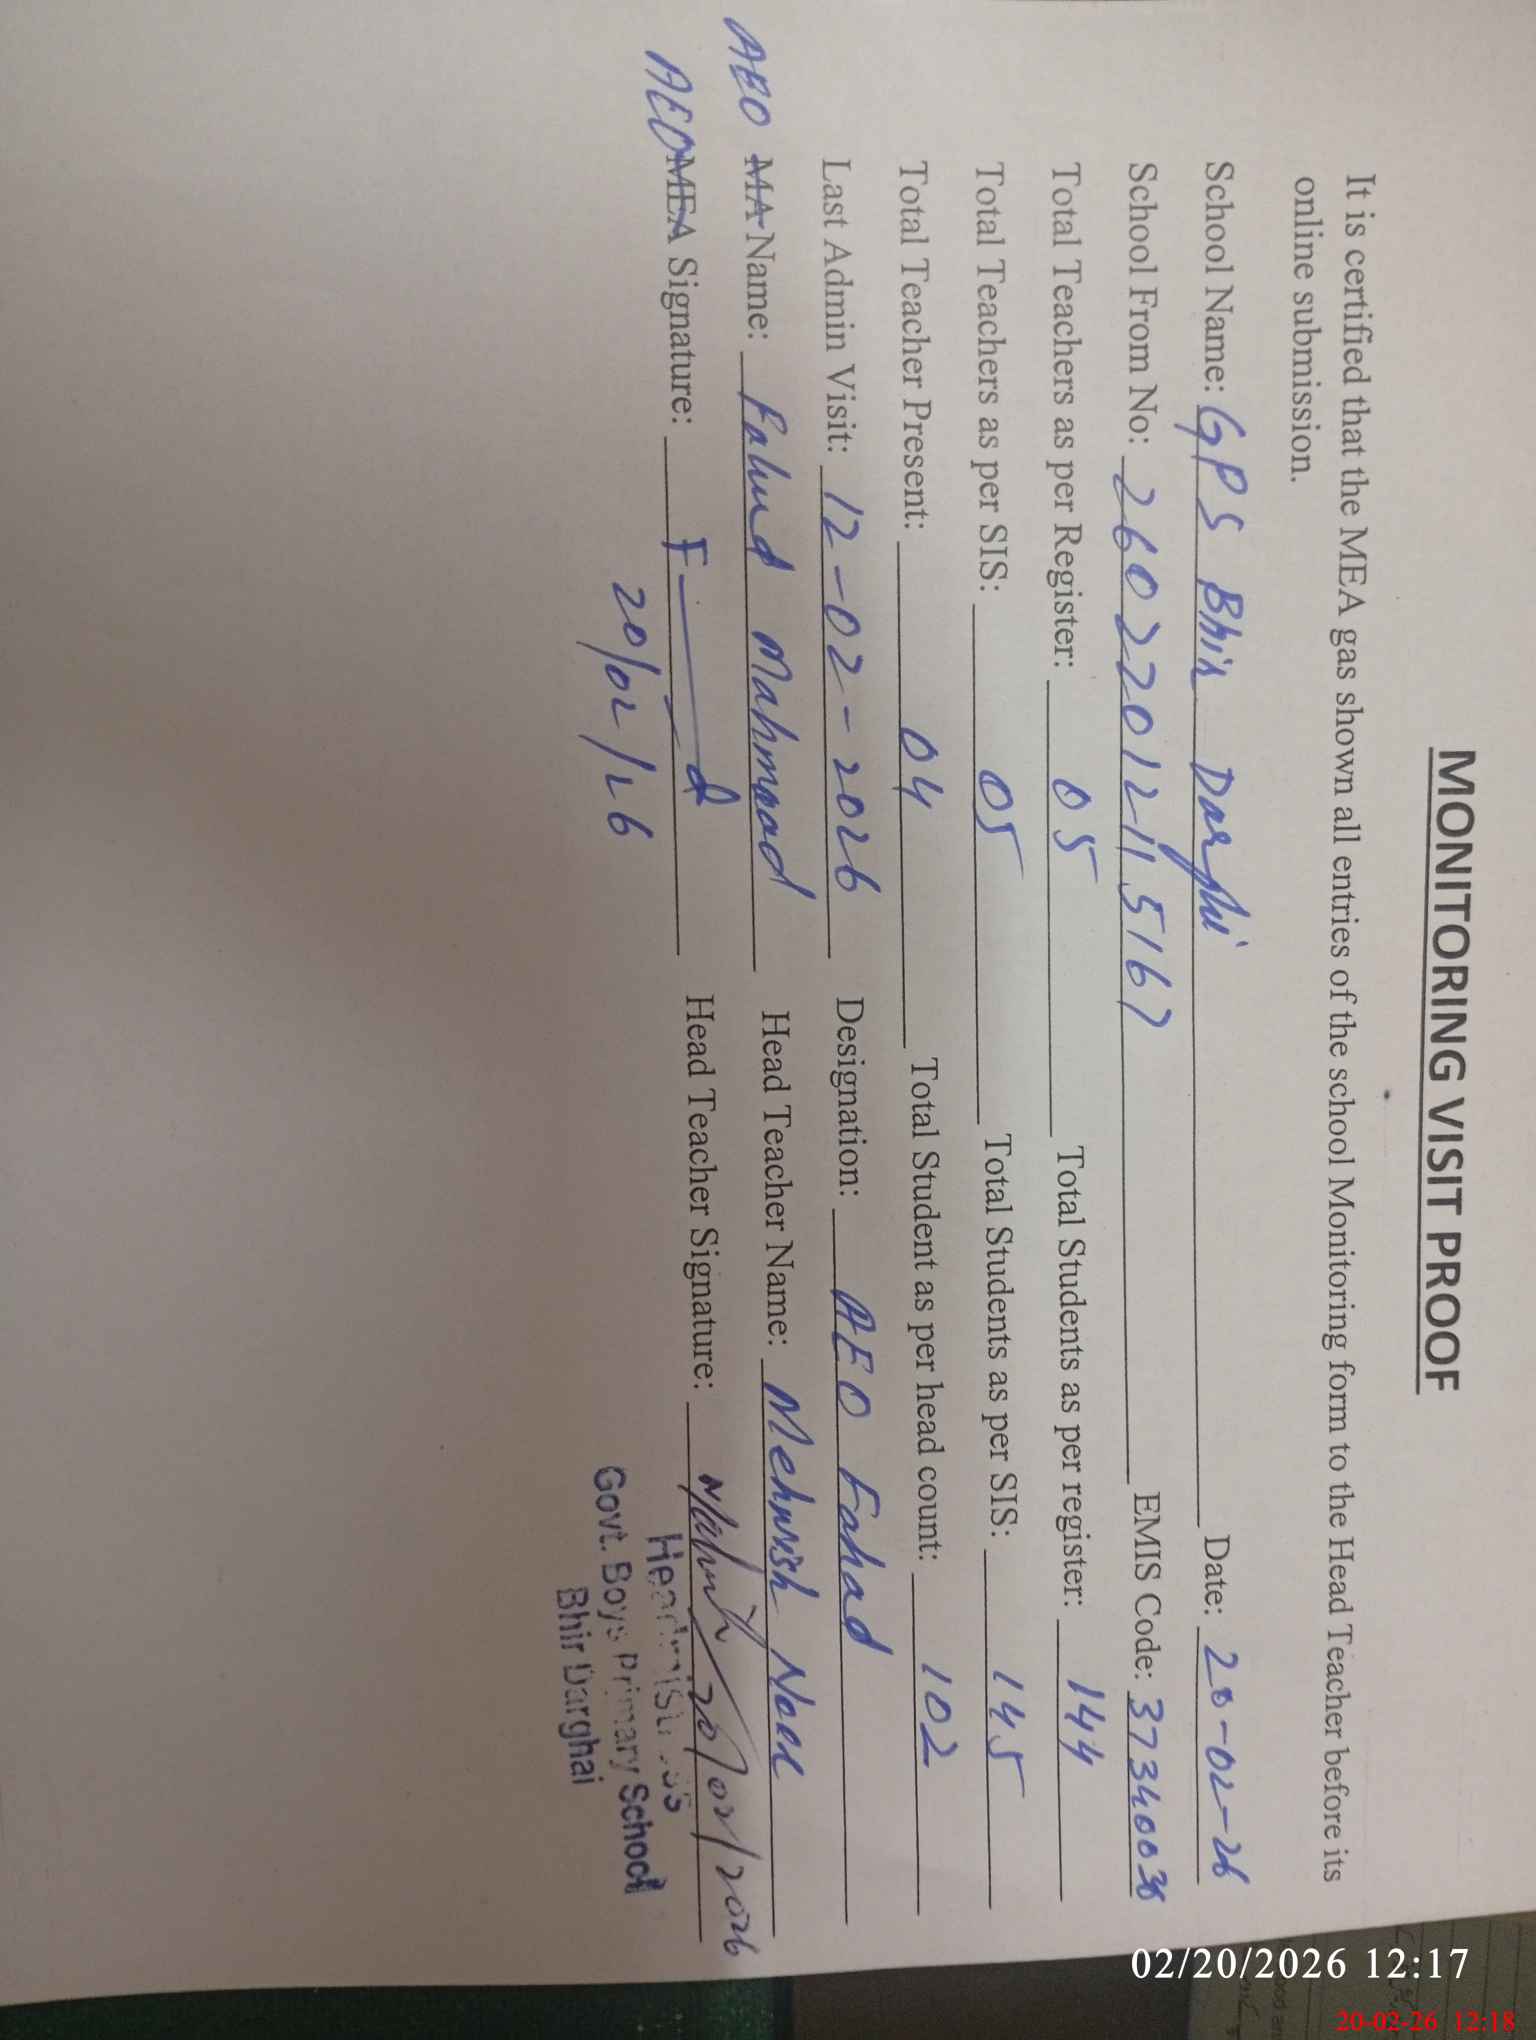 MONITORING VISIT PROOF
It is certified that the MEA gas shown all entries of the school Monitoring form to the Head Teacher before its
online submission.
School Name: GPS Bhir Darghi Date: 20-02-26
School From No: 260220121115167 EMIS Code: 37340038
Total Teachers as per Register: 05 Total Students as per register: 144
Total Teachers as per SIS: 05 Total Students as per SIS: 145
Total Teacher Present: 04 Total Student as per head count: 102
Last Admin Visit: 12-02-2026 Designation: AEO Fahad
AEO MA Name: Fahad Mahmood Head Teacher Name: Mehwish Noor
AEO MEA Signature: Head Teacher Signature: 20/02/2026
20/02/26
Headmistress
Govt. Boys Primary School
Bhir Darghai
02/20/2026 12:17
20-02-26 12:18